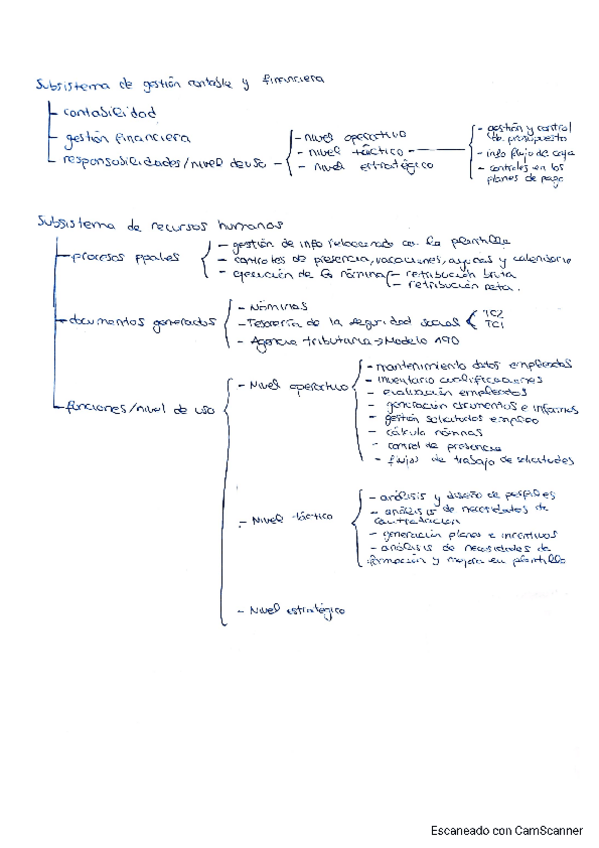 Subsistema de gestión contable y financiera
contabilidad
gestión financiera
responsabilidades/nivel de uso
- nivel operativo
- nivel táctico
- nivel estratégico
- gestión y control de presupuesto
- info flujo de caja
- controles en los planes de pago
Subsistema de recursos humanos
procesos ppales
- gestión de info relacionada con la plantilla
- controles de presencia, vacaciones, ayudas y calendario
- ejecución de la nómina
- retribución bruta
- retribución neta.
documentos generados
- Nóminas
- Tesorería de la seguridad social
TC2
TC1
- Agencia tributaria → Modelo 190
funciones/nivel de uso
- Nivel operativo
- mantenimiento datos empleados
- inventario cualificaciones
- evaluación empleados
- generación documentos e informes
- gestión solicitudes empleo
- cálculo nóminas
- control de presencia
- flujos de trabajo de solicitudes
- Nivel táctico
- análisis y diseño de perfiles
- análisis de necesidades de contratación
- generación planes e incentivos
- análisis de necesidades de formación y mejora en plantilla
- Nivel estratégico
Escaneado con CamScanner